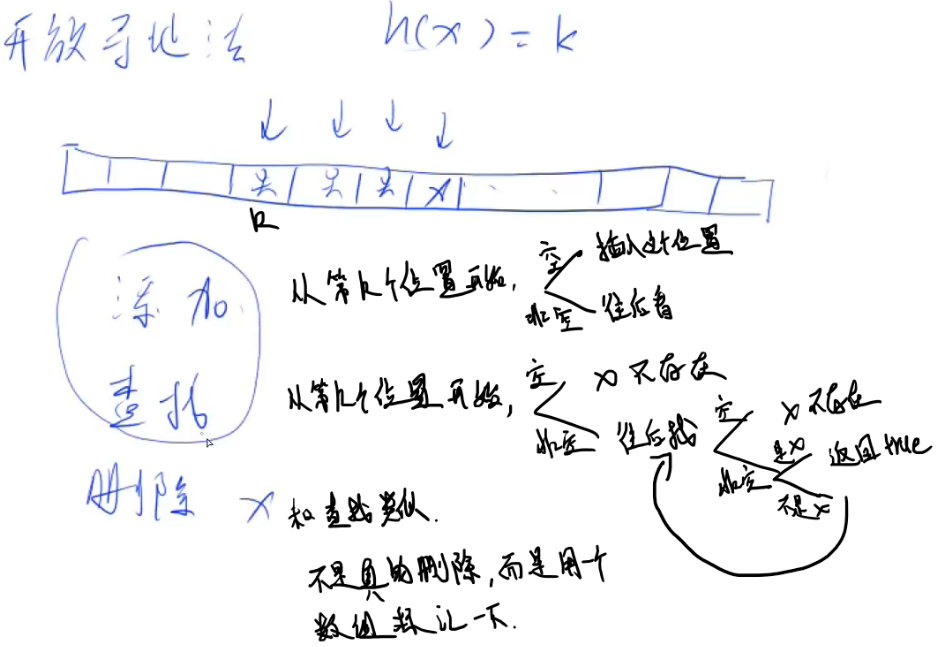 开放寻址法 h(x) = k
关 关 关 x
k
添加 从第k个位置开始, 空 插入这个位置
非空 往后看
查找 从第k个位置开始, 空 x不存在
非空 往后找 空 x不存在
非空 是x 返回true
不是x
删除 x 和查找类似.
不是真的删除,而是用个
数值标记一下.